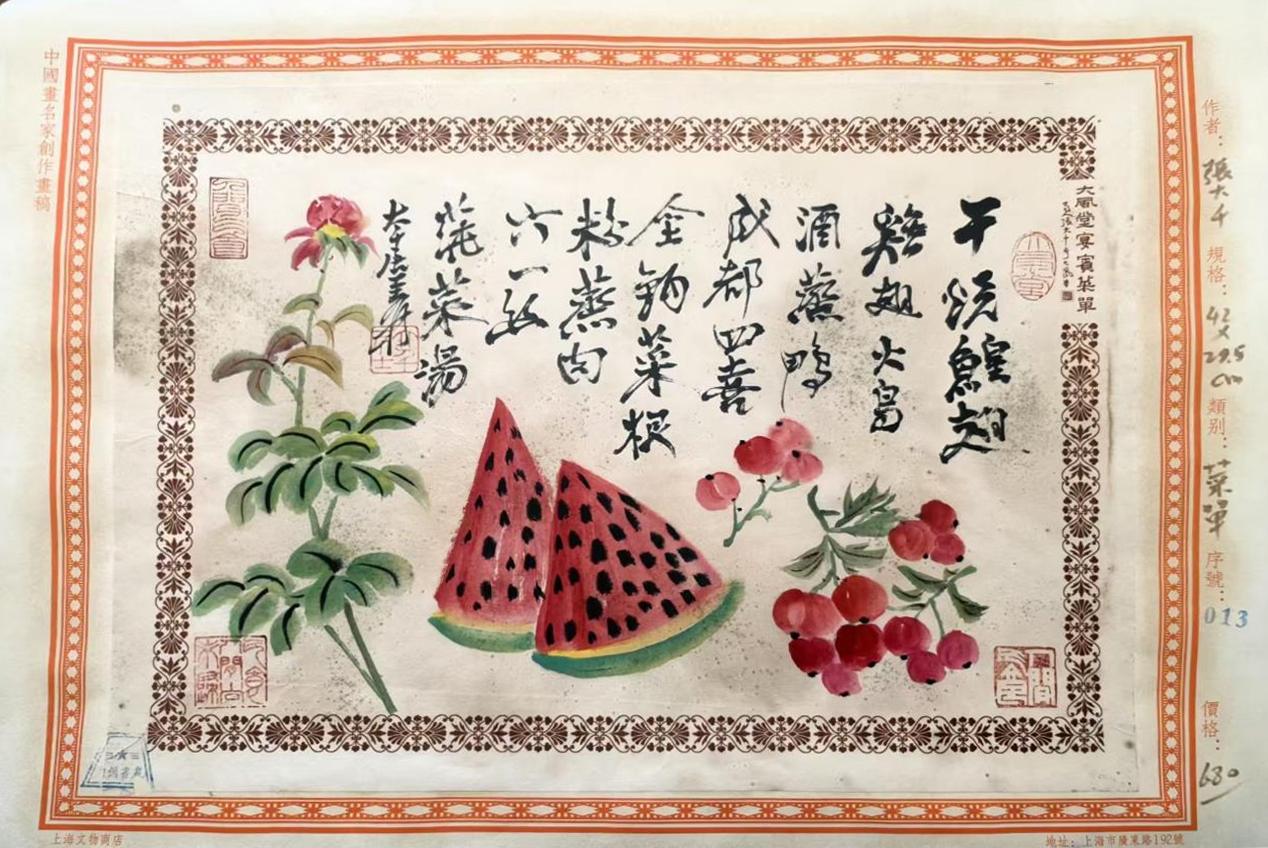 中國畫名家創作畫稿
作者：張大千
規格：42×29.5cm
類别：菜單
序號：013
價格：680
大風堂宴賓菜單
干燒鰉翅
雞翅火
酒蒸鴨
成都四喜
全鉤菜根
粉蒸肉
六一絲
蒓菜湯
上海文物商店
地址：上海市廣東路192號